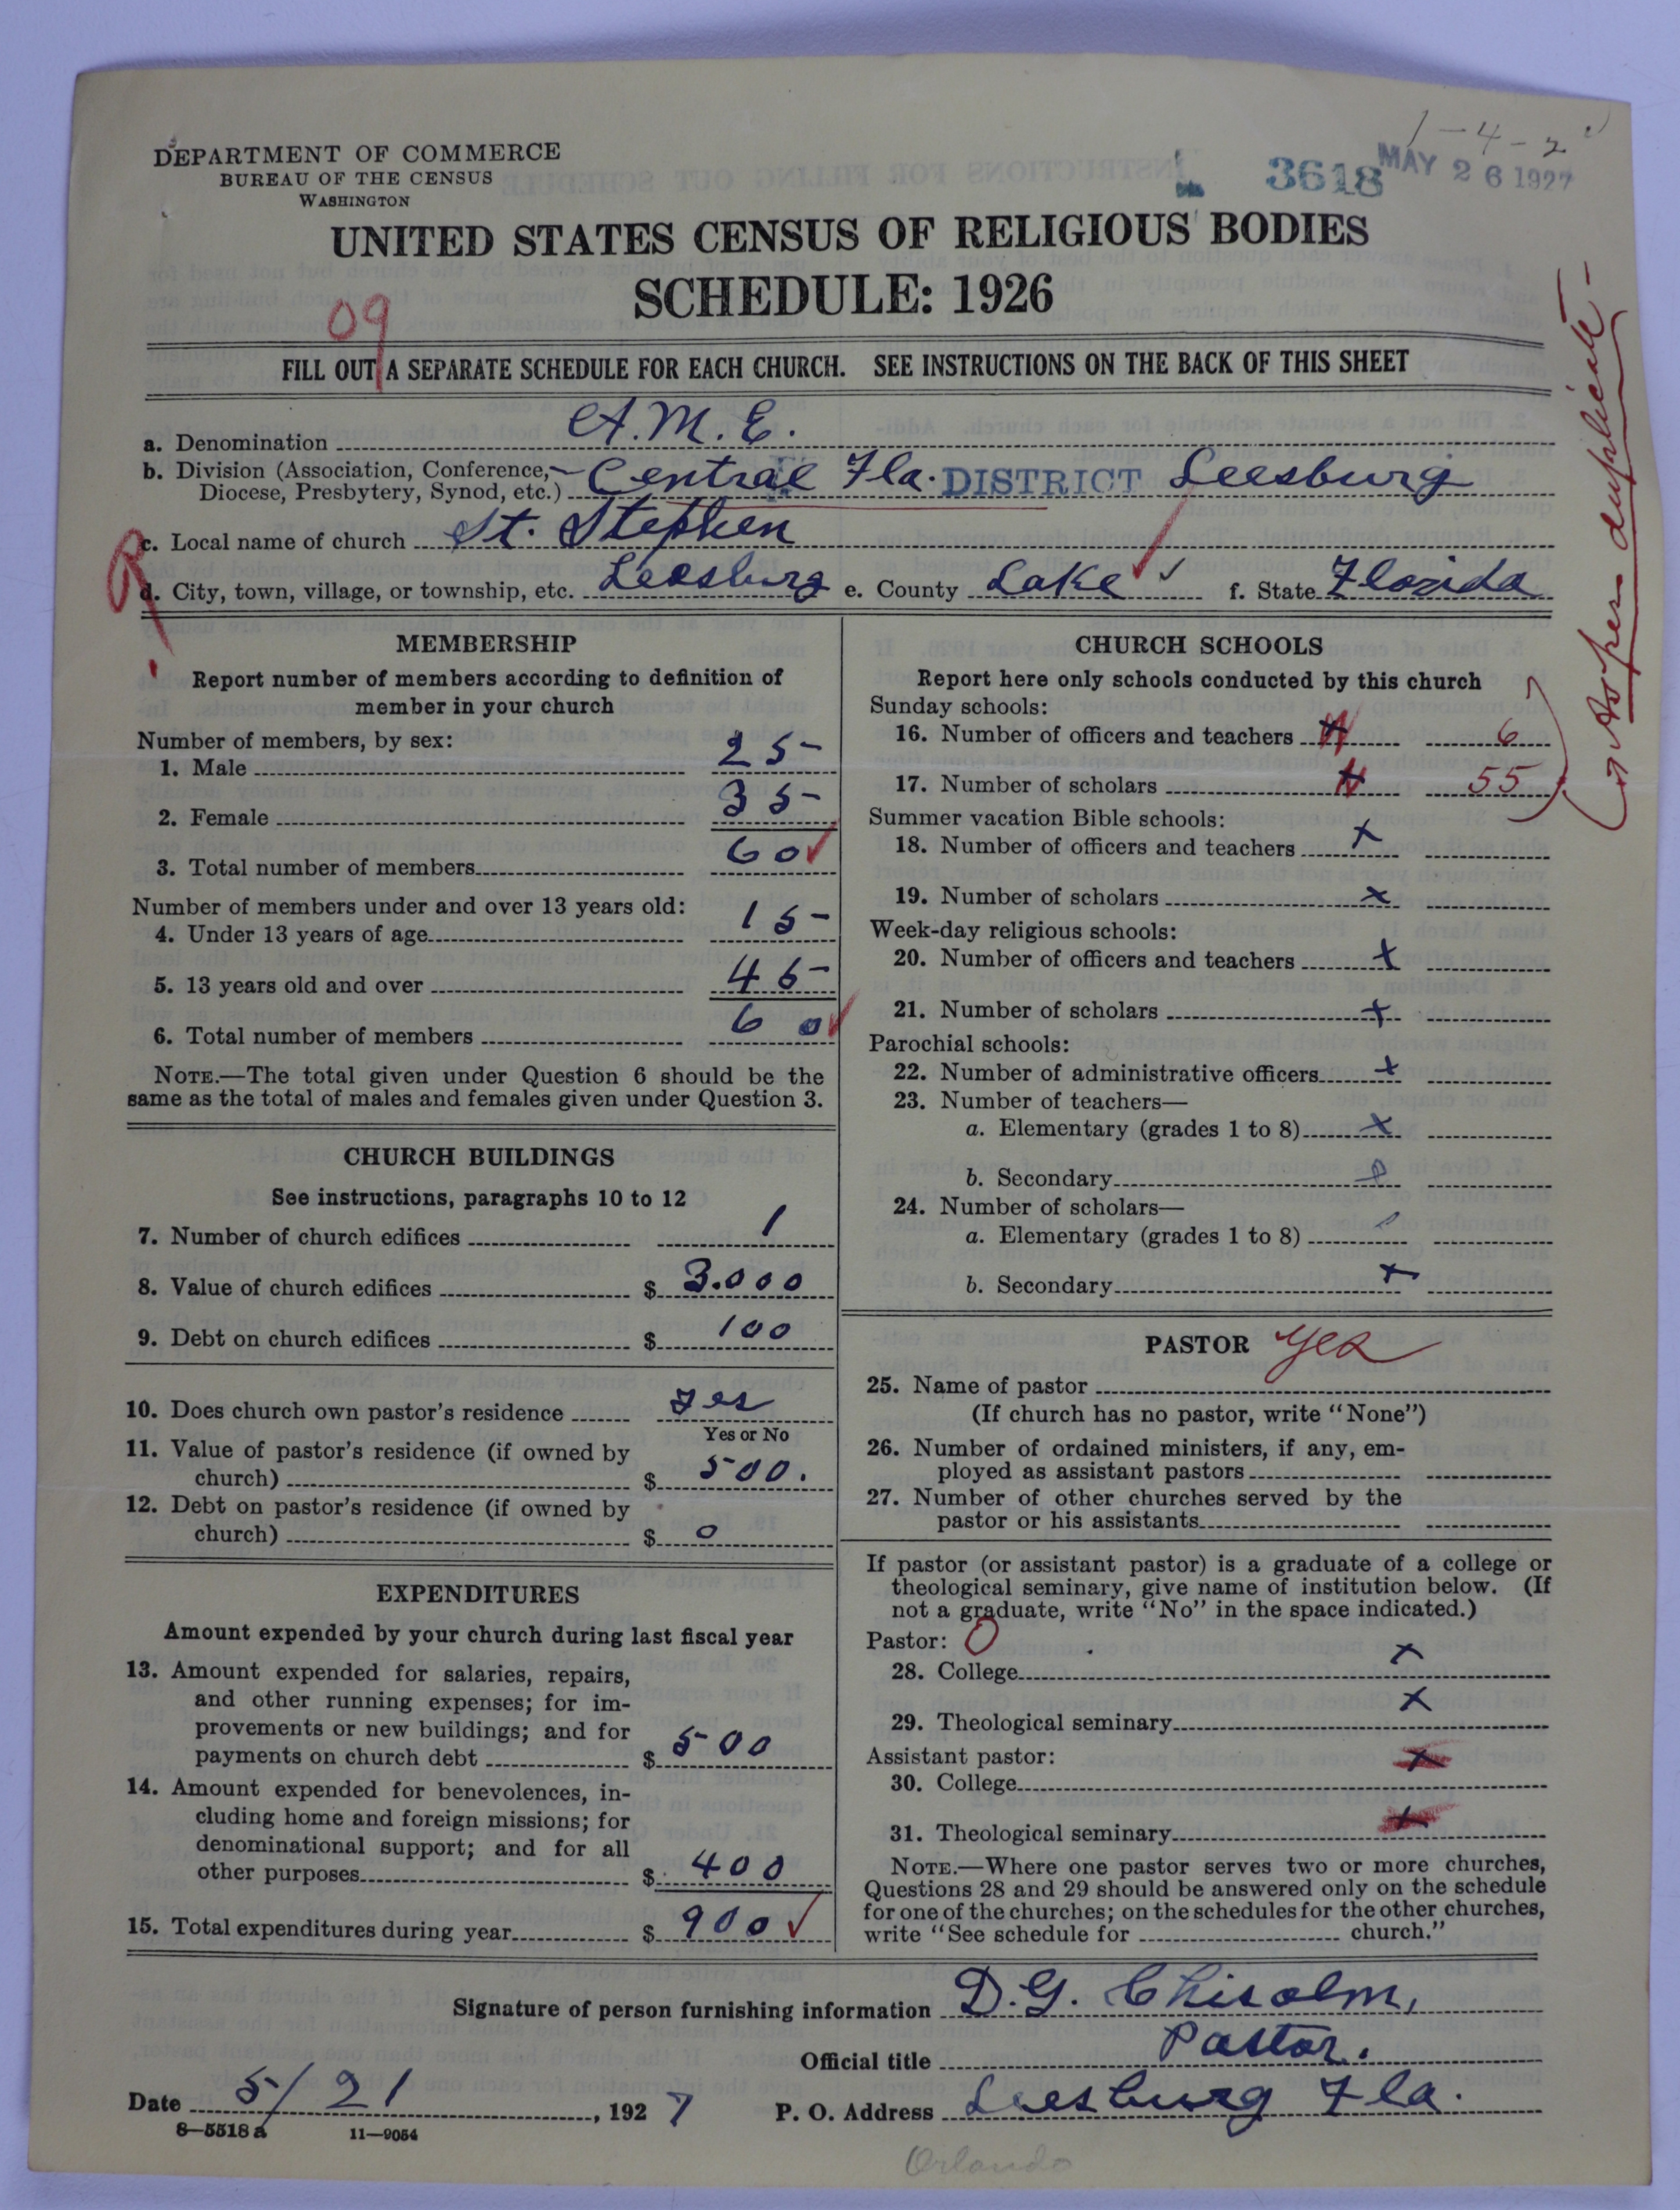 1-4-2
DEPARTMENT OF COMMERCE
BUREAU OF THE CENSUS
WASHINGTON
3618 MAY 26 1927
UNITED STATES CENSUS OF RELIGIOUS BODIES
SCHEDULE: 1926
09
FILL OUT A SEPARATE SCHEDULE FOR EACH CHURCH. SEE INSTRUCTIONS ON THE BACK OF THIS SHEET
a. Denomination A.M.E.
b. Division (Association, Conference, Diocese, Presbytery, Synod, etc.) Central Fla. DISTRICT Leesburg
c. Local name of church St. Stephen
R
d. City, town, village, or township, etc. Leesburg e. County Lake ✓ f. State Florida
MEMBERSHIP
Report number of members according to definition of
member in your church
Number of members, by sex:
1. Male 25
2. Female 35
3. Total number of members 60 ✓
Number of members under and over 13 years old:
4. Under 13 years of age 15
5. 13 years old and over 45
6. Total number of members 60 ✓
NOTE.—The total given under Question 6 should be the
same as the total of males and females given under Question 3.
CHURCH BUILDINGS
See instructions, paragraphs 10 to 12
7. Number of church edifices 1
8. Value of church edifices $ 3.000
9. Debt on church edifices $ 100
10. Does church own pastor's residence yes
Yes or No
11. Value of pastor's residence (if owned by
church) $ 500.
12. Debt on pastor's residence (if owned by
church) $ 0
EXPENDITURES
Amount expended by your church during last fiscal year
13. Amount expended for salaries, repairs,
and other running expenses; for im-
provements or new buildings; and for
payments on church debt $ 500
14. Amount expended for benevolences, in-
cluding home and foreign missions; for
denominational support; and for all
other purposes $ 400
15. Total expenditures during year $ 900 ✓
CHURCH SCHOOLS
Report here only schools conducted by this church
Sunday schools:
16. Number of officers and teachers 6
17. Number of scholars 55
as per duplicate-
Summer vacation Bible schools:
18. Number of officers and teachers x
19. Number of scholars x
Week-day religious schools:
20. Number of officers and teachers x
21. Number of scholars x
Parochial schools:
22. Number of administrative officers x
23. Number of teachers—
a. Elementary (grades 1 to 8) x
b. Secondary
24. Number of scholars—
a. Elementary (grades 1 to 8)
b. Secondary x
PASTOR yes
25. Name of pastor
(If church has no pastor, write "None")
26. Number of ordained ministers, if any, em-
ployed as assistant pastors
27. Number of other churches served by the
pastor or his assistants
If pastor (or assistant pastor) is a graduate of a college or
theological seminary, give name of institution below. (If
not a graduate, write "No" in the space indicated.)
Pastor: O
28. College x
29. Theological seminary x
Assistant pastor:
30. College x
31. Theological seminary x
NOTE.—Where one pastor serves two or more churches,
Questions 28 and 29 should be answered only on the schedule
for one of the churches; on the schedules for the other churches,
write "See schedule for church."
Signature of person furnishing information D.G. Chisolm,
Official title Pastor.
Date 5/21, 1927 P. O. Address Leesburg Fla.
8—5518a 11—9054
Orlando